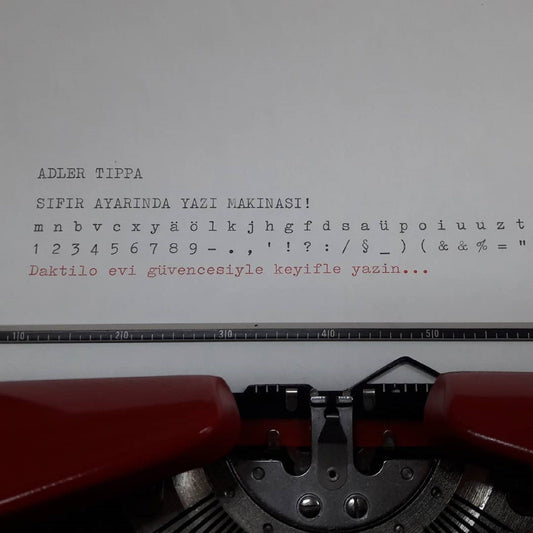 ADLER TIPPA
SIFIR AYARINDA YAZI MAKINASI!
m n b v c x y ä ö l k j h g f d s a ü p o i u u z t
1 2 3 4 5 6 7 8 9 - . , ' ! ? : / § _ ) ( & & % = "
Daktilo evi güvencesiyle keyifle yazin...
110 210 310 410 510